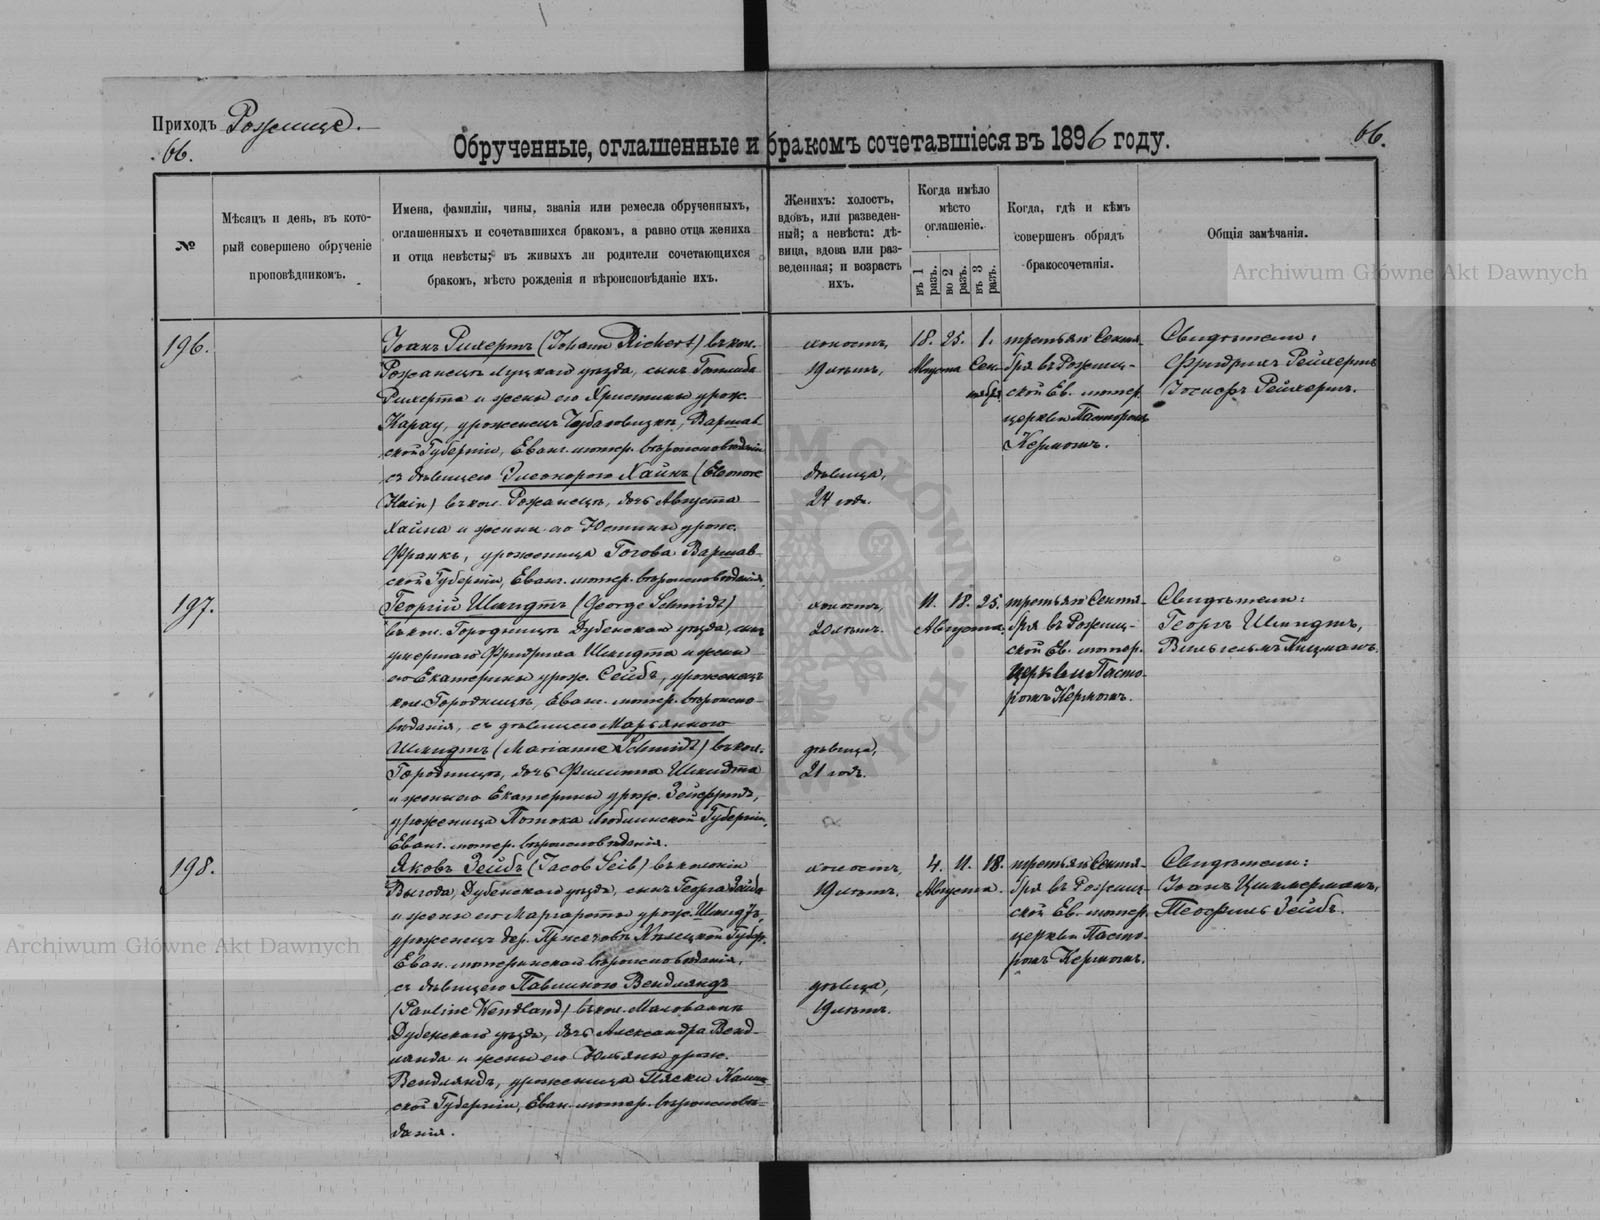 Приходъ Рожище.
66.
Обрученные, оглашенные и бракомъ сочетавшіеся въ 1896 году.
66.
№
Мѣсяцъ и день, въ кото-
рый совершено обрученіе
проповѣдникомъ.
Имена, фамиліи, чины, званія или ремесла обрученныхъ,
оглашенныхъ и сочетавшихся бракомъ, а равно отца жениха
и отца невѣсты; въ живыхъ ли родители сочетающихся
бракомъ, мѣсто рожденія и вѣроисповѣданіе ихъ.
Женихъ: холостъ,
вдовъ, или разведен-
ный; а невѣста: дѣ-
вица, вдова или раз-
веденная; и возрастъ
ихъ.
Когда имѣло
мѣсто
оглашеніе.
въ 1 разъ.
во 2 разъ.
въ 3 разъ.
Когда, гдѣ и кѣмъ
совершенъ обрядъ
бракосочетанія.
Общія замѣчанія.
Archiwum Główne Akt Dawnych
196.
Іоанъ Рихертъ (Johann Richert) въ кол.
Рожанецъ Луцкаго уѣзда, сынъ Готлиба
Рихерта и жены его Христины урож.
уроженецъ Варшав-
ской Губерніи, Еванг. лютер. вѣроисповѣданія
съ дѣвицею Элеонорою Хайнъ (Eleonore
Hain) въ кол. Рожанецъ, дочь Августа
Хайна и жены его Юстины урож.
Франкъ, уроженица Гогова Варшав-
ской Губерніи, Еванг. лютер. вѣроисповѣданія.
холостъ,
19 лѣтъ,
дѣвица,
24 годъ.
18. 25. 1.
Августа Сен-
тября
третьяго Сентя-
бря въ Рожищ-
ской Ев. лютер.
церкви Пасторомъ
Кермомъ.
Свидѣтели:
Фридрихъ Рейхертъ
Іосифъ Рейхертъ.
197.
Георгій Шмидтъ (George Schmidt)
въ кол. Городницъ Дубенскаго уѣзда, сынъ
умершаго Фридриха Шмидта и жены
его Екатерины урож. Сейбъ, уроженецъ
кол. Городницъ, Еванг. лютер. вѣроиспо-
вѣданія, съ дѣвицею Марьянною
Шмидтъ (Marianne Schmidt) въ кол.
Городницъ, дочь Филиппа Шмидта
и жены его Екатерины урож. Зейфридъ,
уроженица Потока Люблинской Губерніи,
Еванг. лютер. вѣроисповѣданія.
холостъ,
20 лѣтъ.
дѣвица,
21 годъ.
11. 18. 25.
Августа.
третьяго Сентя-
бря въ Рожищ-
ской Ев. лютер.
церкви Пасто-
ромъ Кермомъ.
Свидѣтели:
Георгъ Шмидтъ,
Вильгельмъ Кицманъ.
198.
Яковъ Зейбъ (Jacob Seib) въ колоніи
Выгода, Дубенскаго уѣзда, сынъ Георга Зейба
и жены его Маргареты урож. Шмидтъ,
уроженецъ дер. Кѣлецкой Губер.
Еван. лютеранскаго вѣроисповѣданія,
съ дѣвицею Павлиною Вендляндъ
(Pauline Wendland) въ кол. Маловання
Дубенскаго уѣзда, дочь Александра Венд-
ланда и жены его Юльяны урож.
Вендляндъ, уроженица Пяски Калиш-
ской Губерніи, Еван. лютер. вѣроисповѣ-
данія.
холостъ,
19 лѣтъ.
дѣвица,
19 лѣтъ.
4. 11. 18.
Августа.
третьяго Сентя-
бря въ Рожищ-
ской Ев. лютер.
церкви Пасто-
ромъ Кермомъ.
Свидѣтели:
Іоанъ Циммерманъ,
Теофиль Зейбъ.
Archiwum Główne Akt Dawnych